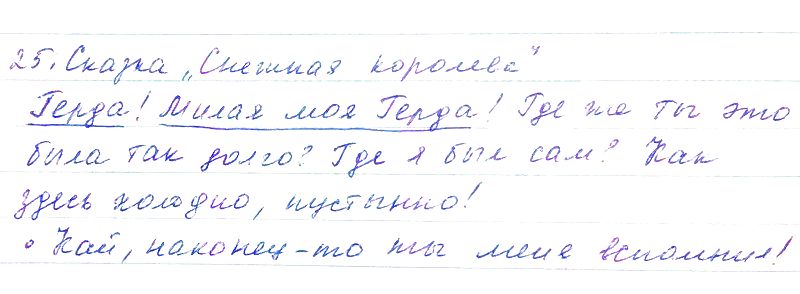 25. Сказка „Снежная королева"
Герда! Милая моя Герда! Где же ты это
была так долго? Где я был сам? Как
здесь холодно, пустынно!
• Кай, наконец-то ты меня вспомнил!